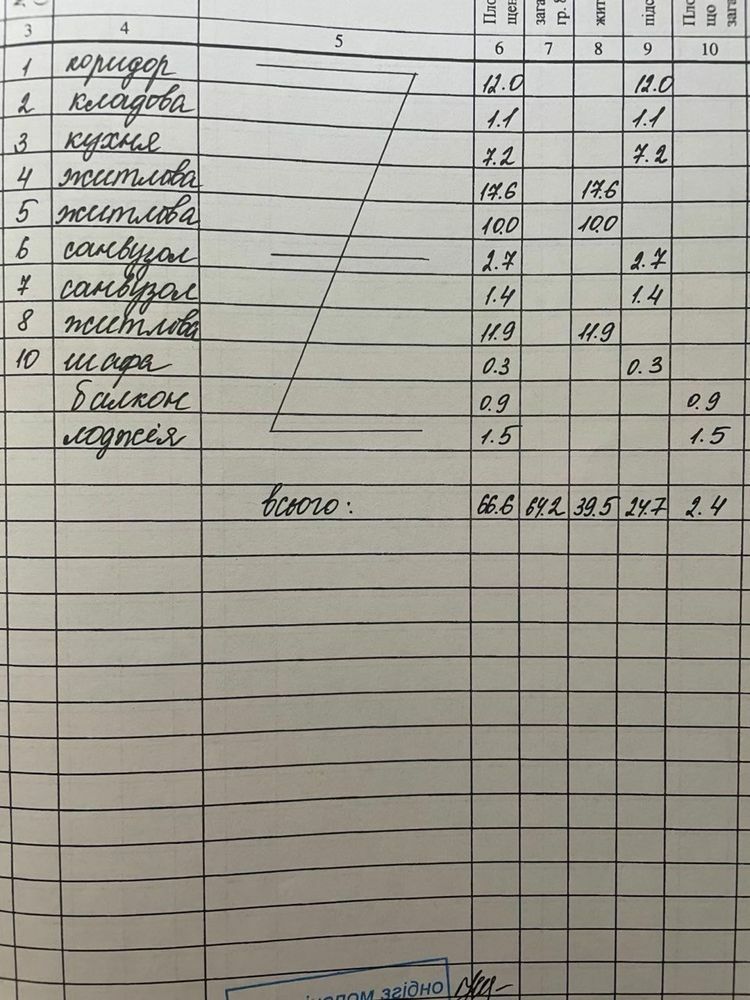 3 4 5 6 7 8 9 10
1 коридор 12.0 12.0
2 кладова 1.1 1.1
3 кухня 7.2 7.2
4 житлова 17.6 17.6
5 житлова 10.0 10.0
6 санвузол 2.7 2.7
7 санвузол 1.4 1.4
8 житлова 11.9 11.9
10 шафа 0.3 0.3
балкон 0.9 0.9
лоджія 1.5 1.5
всього: 66.6 64.2 39.5 24.7 2.4
згідно